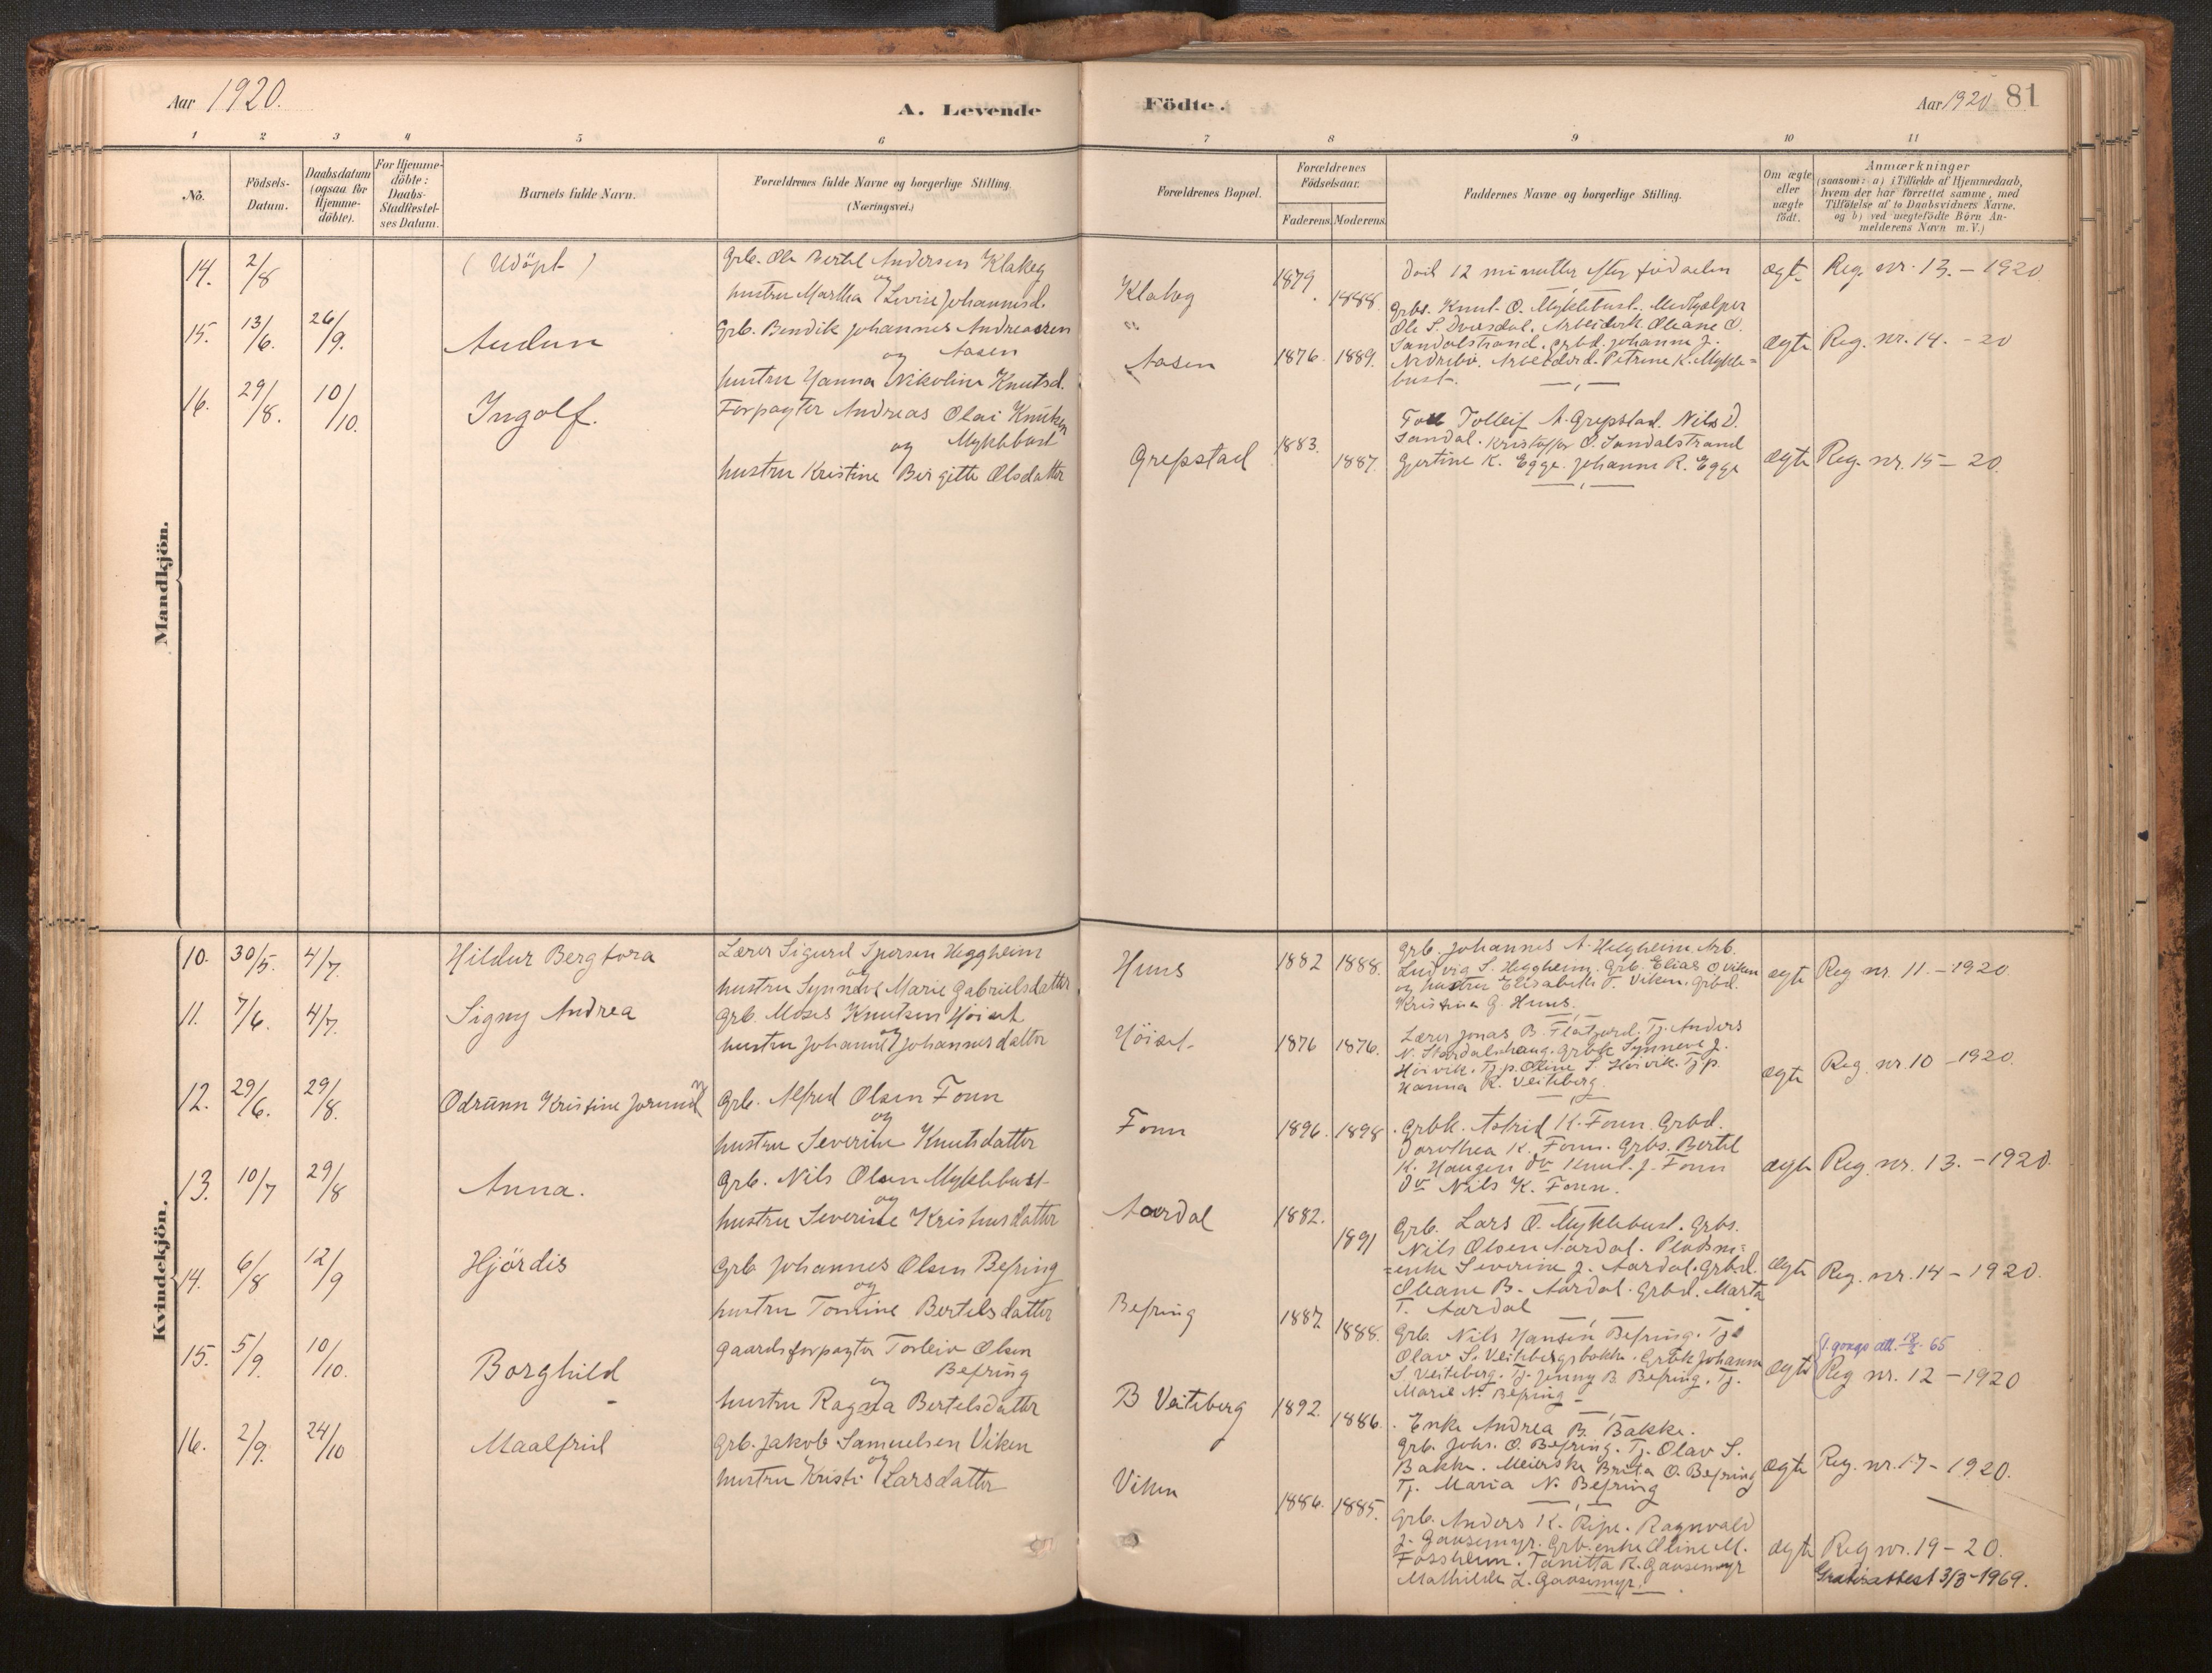 Aar 1920.
A. Levende
Födte.
Aar 1920
81
1 2 3 4 5 6 7 8 9 10 11
No.
Födsels-
Datum.
Daabsdatum
(ogsaa for
Hjemme-
döbte).
For Hjemme-
döbte:
Daabs-
Stadfæstel-
ses Datum.
Barnets fulde Navn.
Forældrenes fulde Navne og borgerlige Stilling
(Næringsvei.)
Forældrenes Bopæl.
Forældrenes
Födselsaar.
Faderens.
Moderens.
Faddernes Navne og borgerlige Stilling.
Om ægte
eller
uægte
födt.
Anmærkninger
(saasom: a) i Tilfælde af Hjemmedaab,
hvem der har forrettet samme, med
Tilföielse af to Daabsvidners Navne,
og b) ved uægtefödte Börn An-
melderens Navn m. V.)
Mandkjön.
14.
2/8
(Udöpt)
Grb. Ole Bertel Andersen Klakeg
og
hustru Martha Lovise Johannesd.
Klakeg
1879
1888.
Död 12 minutter efter födselen
ægte
Reg. nr. 13. - 1920
15.
13/6.
26/9.
Audun
Grb. Bendik Johannes Andreassen
og Aasen
hustru Hanna Nikoline Knutsd.
Aasen
1876.
1889.
Grbs. Knut O. Myklebust. Medhjælper
Ole S. Dvergsdal. Arbeidersk. Oleane O.
Sandalstrand. Grbd. Johanne J.
Nedrebö. Arbeiderd. Petrine K. Mykle=
bust.
ægte
Reg. nr. 14. - 20
16.
29/8.
10/10.
Ingolf.
Forpagter Andreas Olai Knutsen
og Myklebust
hustru Kristine Bergitte Olsdatter
Grepstad
1883.
1887.
Tolleif A. Grepstad. Nils D.
Sandal. Kristoffer O. Sandalstrand
Gjertine K. Egge. Johanne R. Egge
ægte
Reg. nr. 15 - 20.
Kvindekjön.
10.
30/5.
4/7.
Hildur Bergtora
Lærer Sigurd Sjursen Heggheim
og
hustru Synneve Marie Gabrielsdatter
Huus
1882
1888.
Grb. Johannes A. Helgheim Arb.
Ludvig S. Heggheim. Grb. Elias O Viken
og hustru Elisabeth T. Viken. Grbd.
Kristina G. Huus.
ægte
Reg nr. 11. - 1920
11.
7/6.
4/7.
Signy Andrea
Grb. Moses Knutsen Höiset
og
hustru Johanne Johannesdatter
Höiset
1876
1876.
Lærer Jonas B. Flatjord. Tj. Anders
N. Stardalshaug. Grbk Synneve J.
Höivik. Tj.p. Oline S. Höivik. Tj.p.
Hanna K. Veiteberg.
ægte
Reg. nr. 10 - 1920
12.
29/6.
29/8.
Odrunn Kristine Jorunn
Grb. Alfred Olsen Fonn
og
hustru Severine Knutsdatter
Fonn
1896.
1898
Grbk. Astrid K. Fonn. Grbd.
Dorothea K. Fonn. Grbs. Bertel
K. Haugen do Knut J. Fonn
do Nils K. Fonn.
ægte
Reg. nr. 13. - 1920.
13.
10/7
29/8
Anna.
Grb. Nils Olsen Myklebust
og
hustru Severine Kristensdatter
Aardal
1882.
1891
Grb. Lars O. Myklebust. Grbs.
Nils Olsen Aardal. Pladsm=
=enke Severine J. Aardal. Grbd.
Oleane B. Aardal. Grbd. Marta
T. Aardal
ægte
Reg. nr. 14 - 1920.
14.
6/8
12/9
Hjördis
Grb Johannes Olsen Befring
og
hustru Tomine Bertelsdatter
Befring
1887.
1888.
Grb. Nils Hansen Befring. Tj.
Olav S. Veitebergsbakke. Grbk Johanne
S. Veiteberg. Tj. Jenny B. Befring. Tj.
Marie N. Befring
ægte
2. gongs att. 18/3 - 65
Reg nr. 12 - 1920
15.
5/9.
10/10.
Borghild
Gaardsforpagter Torleiv Olsen
Befring
og
hustru Ragna Bertelsdatter
B Veiteberg
1892.
1886.
Enke Andrea B. Bakke.
Grb. Johs. O. Befring. Tj. Olav S.
Bakke. Meierske Brita O. Befring
Tj. Maria N. Befring
ægte
Reg. nr. 17 - 1920.
16.
2/9.
24/10
Maalfrid
Grb. Jakob Samuelsen Viken
og
hustru Kristi Larsdatter
Viken
1886.
1885.
Grb. Anders K. Ripe. Ragnvald
J. Gaasemyr. Grb.enke Oline M.
Fossheim. Tanitta R. Gaasemyr
Mathilde L. Gaasemyr.
ægte
Reg nr. 19 - 20.
Gratisattest 3/3 - 1969.